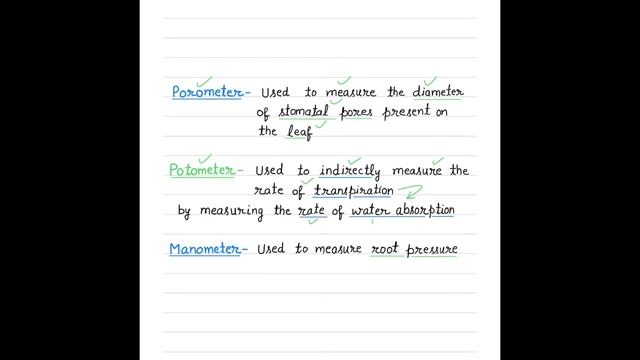 Porometer- Used to measure the diameter
of stomatal pores present on
the leaf
Potometer- Used to indirectly measure the
rate of transpiration
by measuring the rate of water absorption
Manometer- Used to measure root pressure